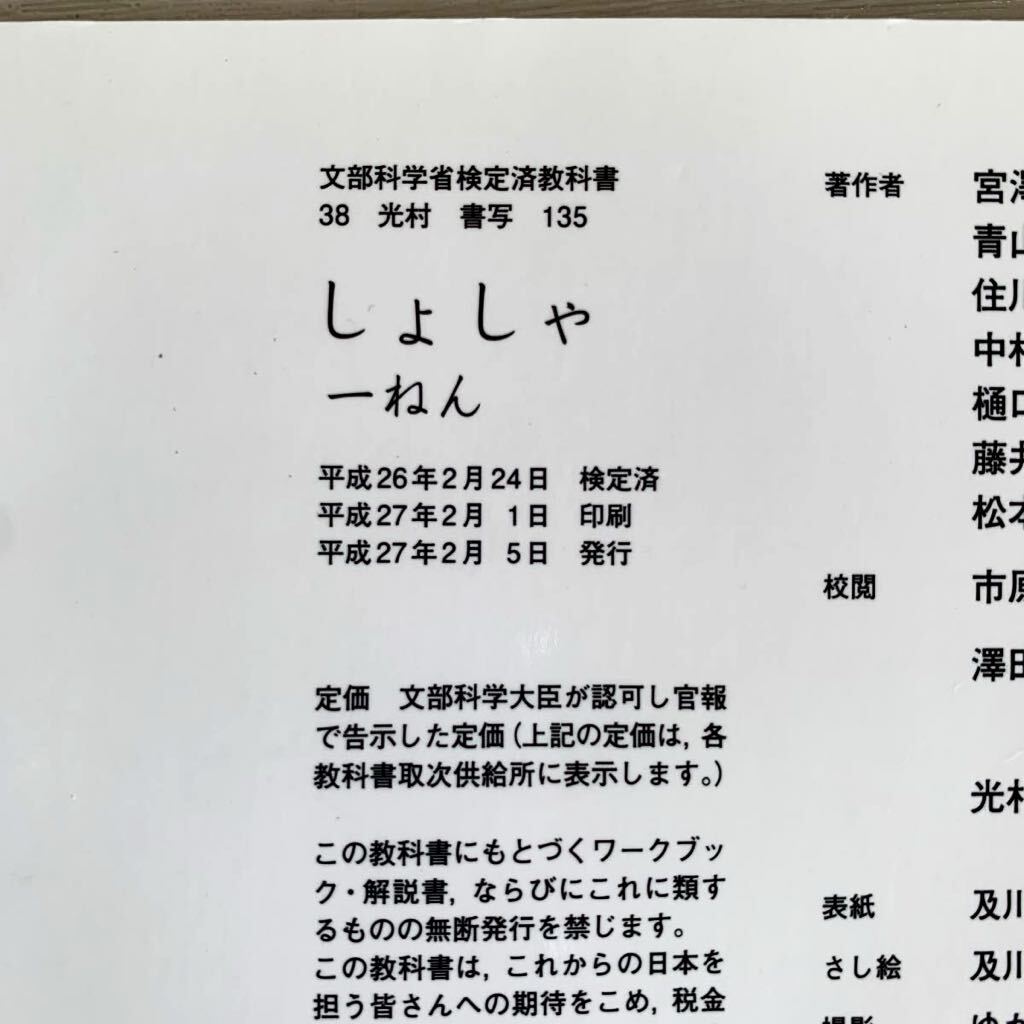 文部科学省検定済教科書
38 光村 書写 135
しょしゃ
一ねん
平成26年2月24日 検定済
平成27年2月 1日 印刷
平成27年2月 5日 発行
定価 文部科学大臣が認可し官報
で告示した定価(上記の定価は,各
教科書取次供給所に表示します。)
この教科書にもとづくワークブッ
ク・解説書,ならびにこれに類す
るものの無断発行を禁じます。
この教科書は,これからの日本を
担う皆さんへの期待をこめ,税金
著作者
宮澤
青山
住川
中村
樋口
藤井
松本
校閲
市原
澤田
光村
表紙
及川
さし絵
及川
撮影